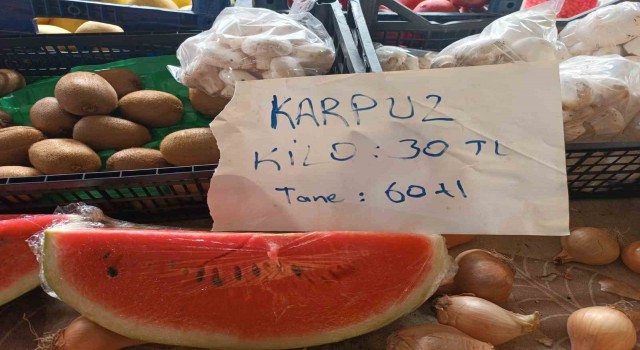 KARPUZ
KİLO : 30 TL
Tane : 60 tl